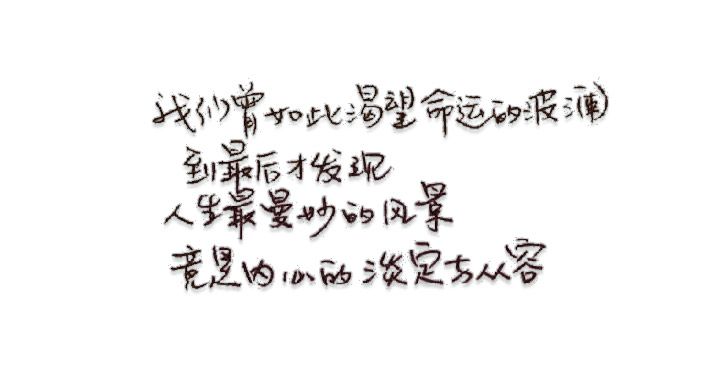 我们曾如此渴望命运的波澜
到最后才发现
人生最曼妙的风景
竟是内心的淡定与从容